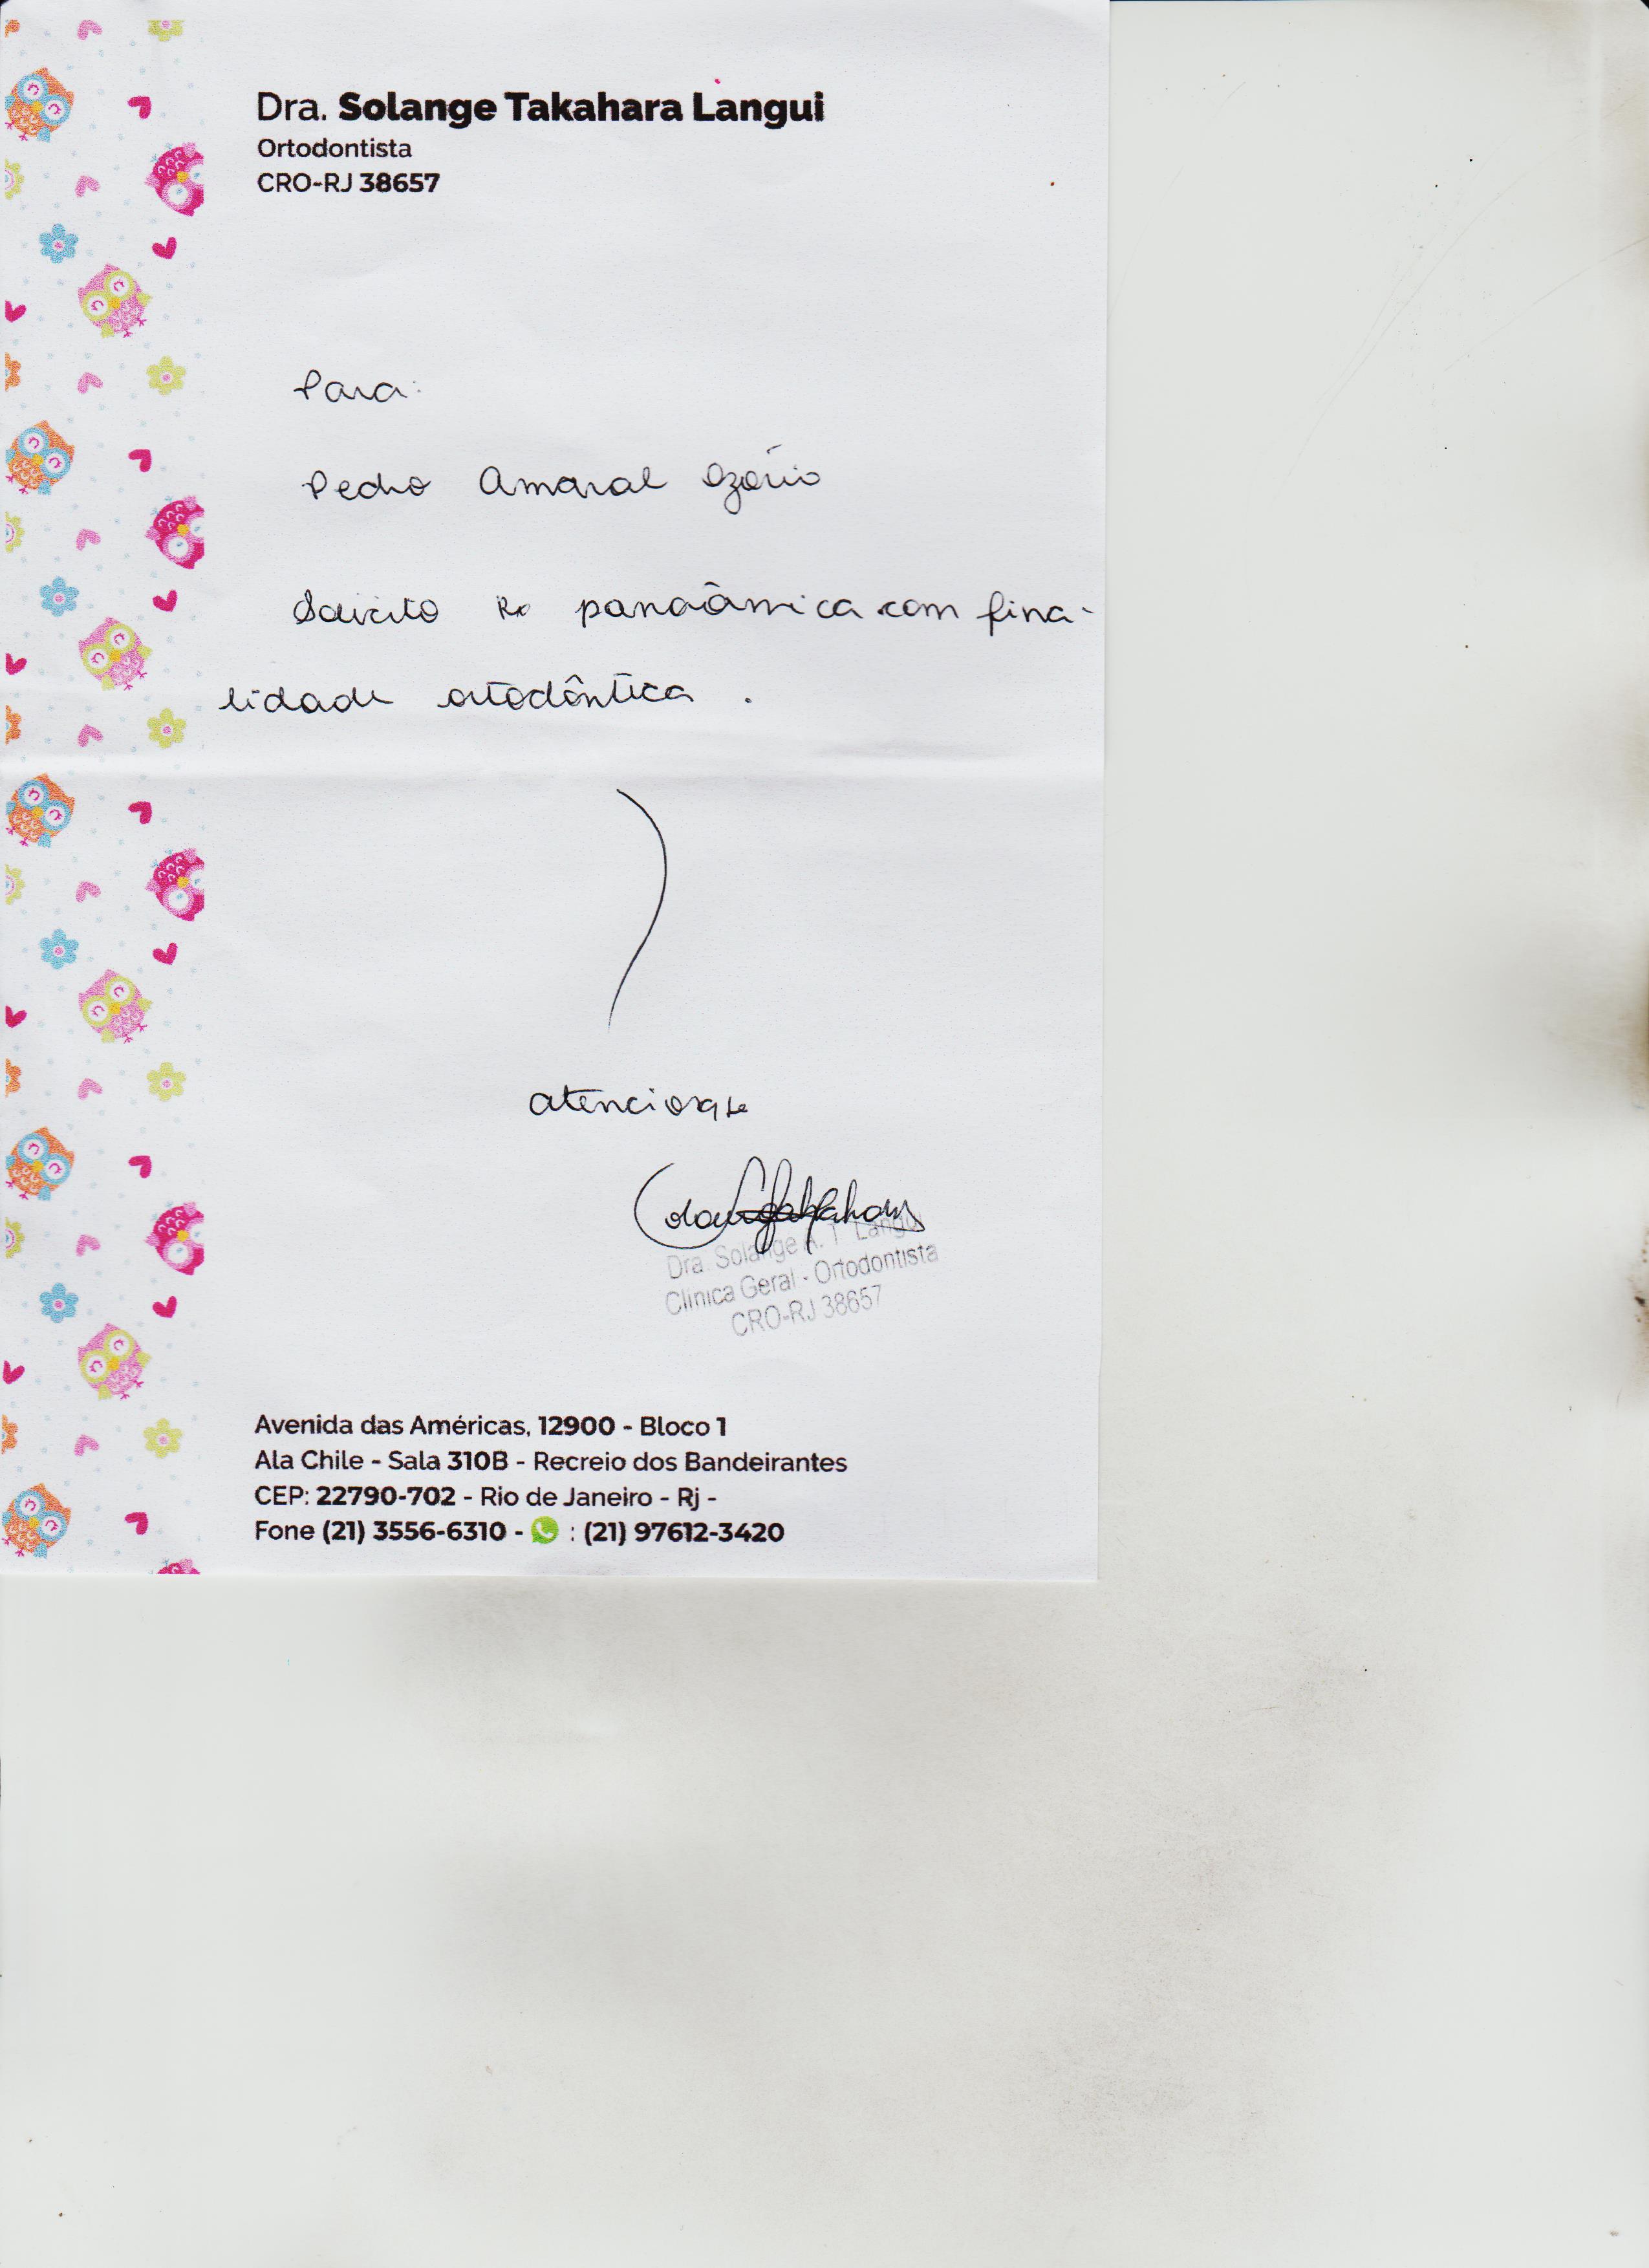 Dra. Solange Takahara Langui
Ortodontista
CRO-RJ 38657
Para:
Pedro Amaral Ozório
Solicito Rx panorâmica com fina-
lidade ortodôntica.
Dra. Solange A. T. Langui
Clínica Geral - Ortodontista
CRO-RJ 38657
Avenida das Américas, 12900 - Bloco 1
Ala Chile - Sala 310B - Recreio dos Bandeirantes
CEP: 22790-702 - Rio de Janeiro - Rj -
Fone (21) 3556-6310 - : (21) 97612-3420